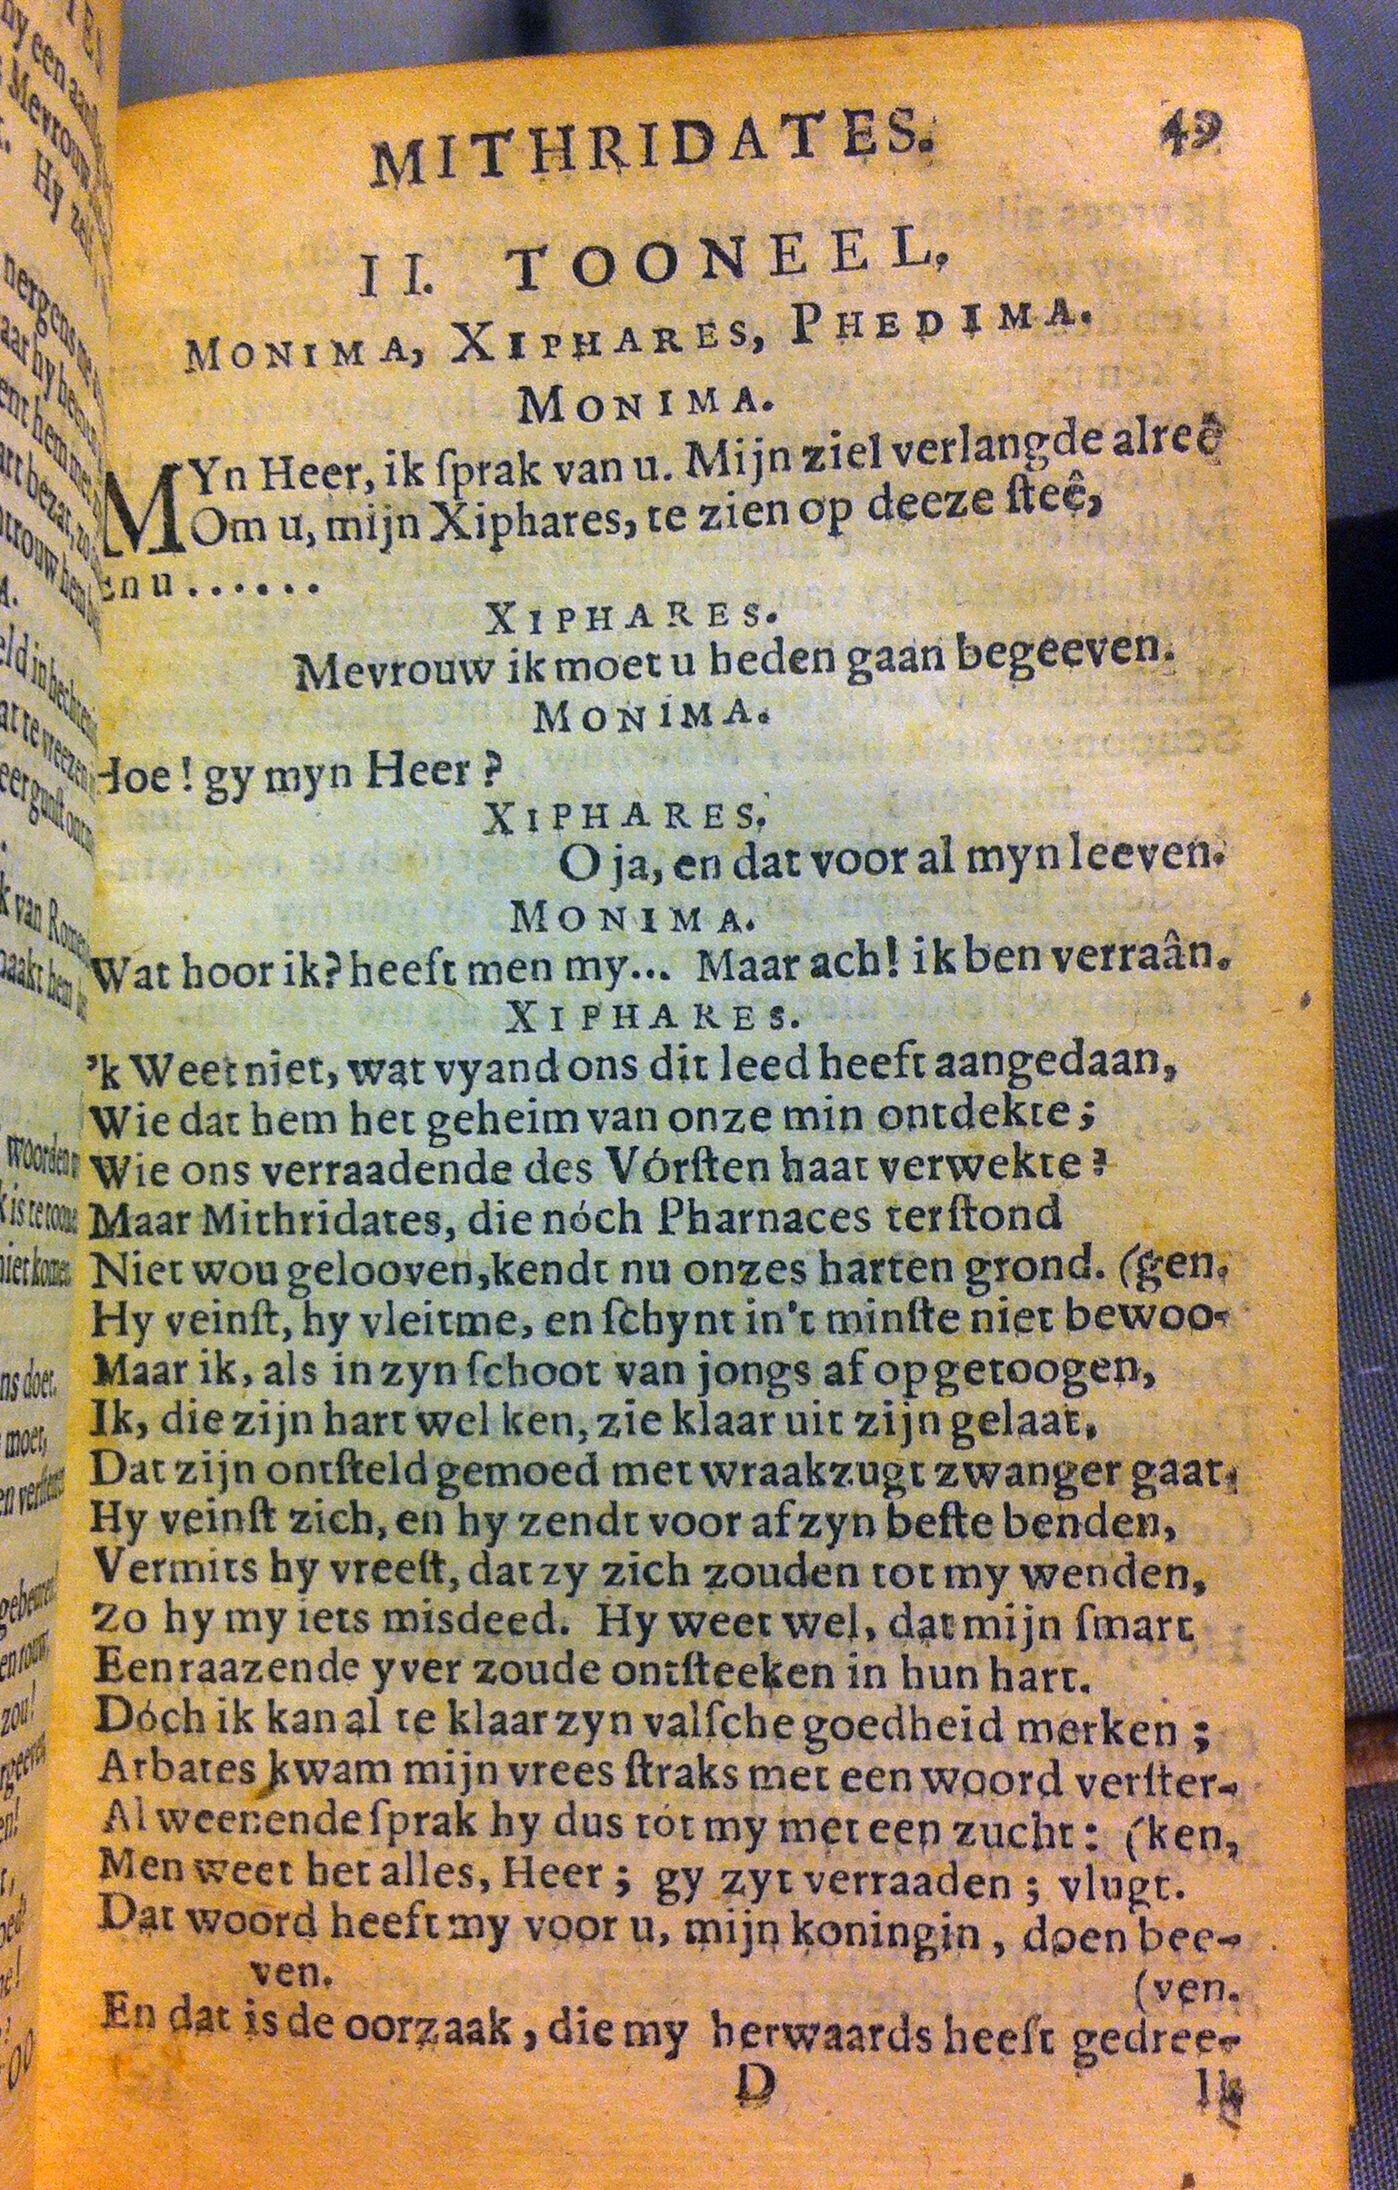 MITHRIDATES. 49
II. TOONEEL,
MONIMA, XIPHARES, PHEDIMA.
MONIMA.
MYn Heer, ik ſprak van u. Mijn ziel verlangde alreê
Om u, mijn Xiphares, te zien op deeze ſteê,
En u......
XIPHARES.
Mevrouw ik moet u heden gaan begeeven.
MONIMA.
Hoe! gy myn Heer?
XIPHARES.
O ja, en dat voor al myn leeven.
MONIMA.
Wat hoor ik? heeft men my... Maar ach! ik ben verraân.
XIPHARES.
'k Weet niet, wat vyand ons dit leed heeft aangedaan,
Wie dat hem het geheim van onze min ontdekte;
Wie ons verraadende des Vórſten haat verwekte?
Maar Mithridates, die nóch Pharnaces terſtond
Niet wou gelooven, kendt nu onzes harten grond. (gen.
Hy veinſt, hy vleit me, en ſchynt in't minſte niet bewoo-
Maar ik, als in zyn ſchoot van jongs af opgetoogen,
Ik, die zijn hart wel ken, zie klaar uit zijn gelaat,
Dat zijn ontſteld gemoed met wraakzugt zwanger gaat,
Hy veinſt zich, en hy zendt voor af zyn beſte benden,
Vermits hy vreeſt, dat zy zich zouden tot my wenden,
Zo hy my iets misdeed. Hy weet wel, dat mijn ſmart
Een raazende yver zoude ontſteeken in hun hart.
Dóch ik kan al te klaar zyn valſche goedheid merken;
Arbates kwam mijn vrees ſtraks met een woord verſter-
Al weenende ſprak hy dus tót my met een zucht: (ken,
Men weet het alles, Heer; gy zyt verraaden; vlugt.
Dat woord heeft my voor u, mijn koningin, doen bee-
ven. (ven.
En dat is de oorzaak, die my herwaards heeft gedree-
D Ik